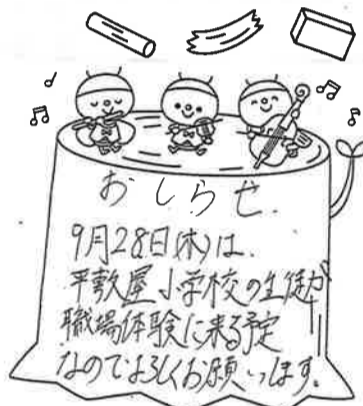 おしらせ.
9月28日(木)は.
平敷屋小学校の生徒が
職場体験に来る予定
なのでよろしくお願いします。